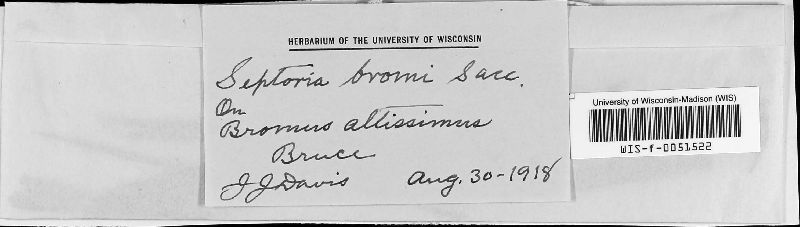 HERBARIUM OF THE UNIVERSITY OF WISCONSIN
Septoria bromi Sacc.
On
Bromus altissimus
Bruce
J J Davis Aug. 30-1918
University of Wisconsin-Madison (WIS)
WIS-f-0051522